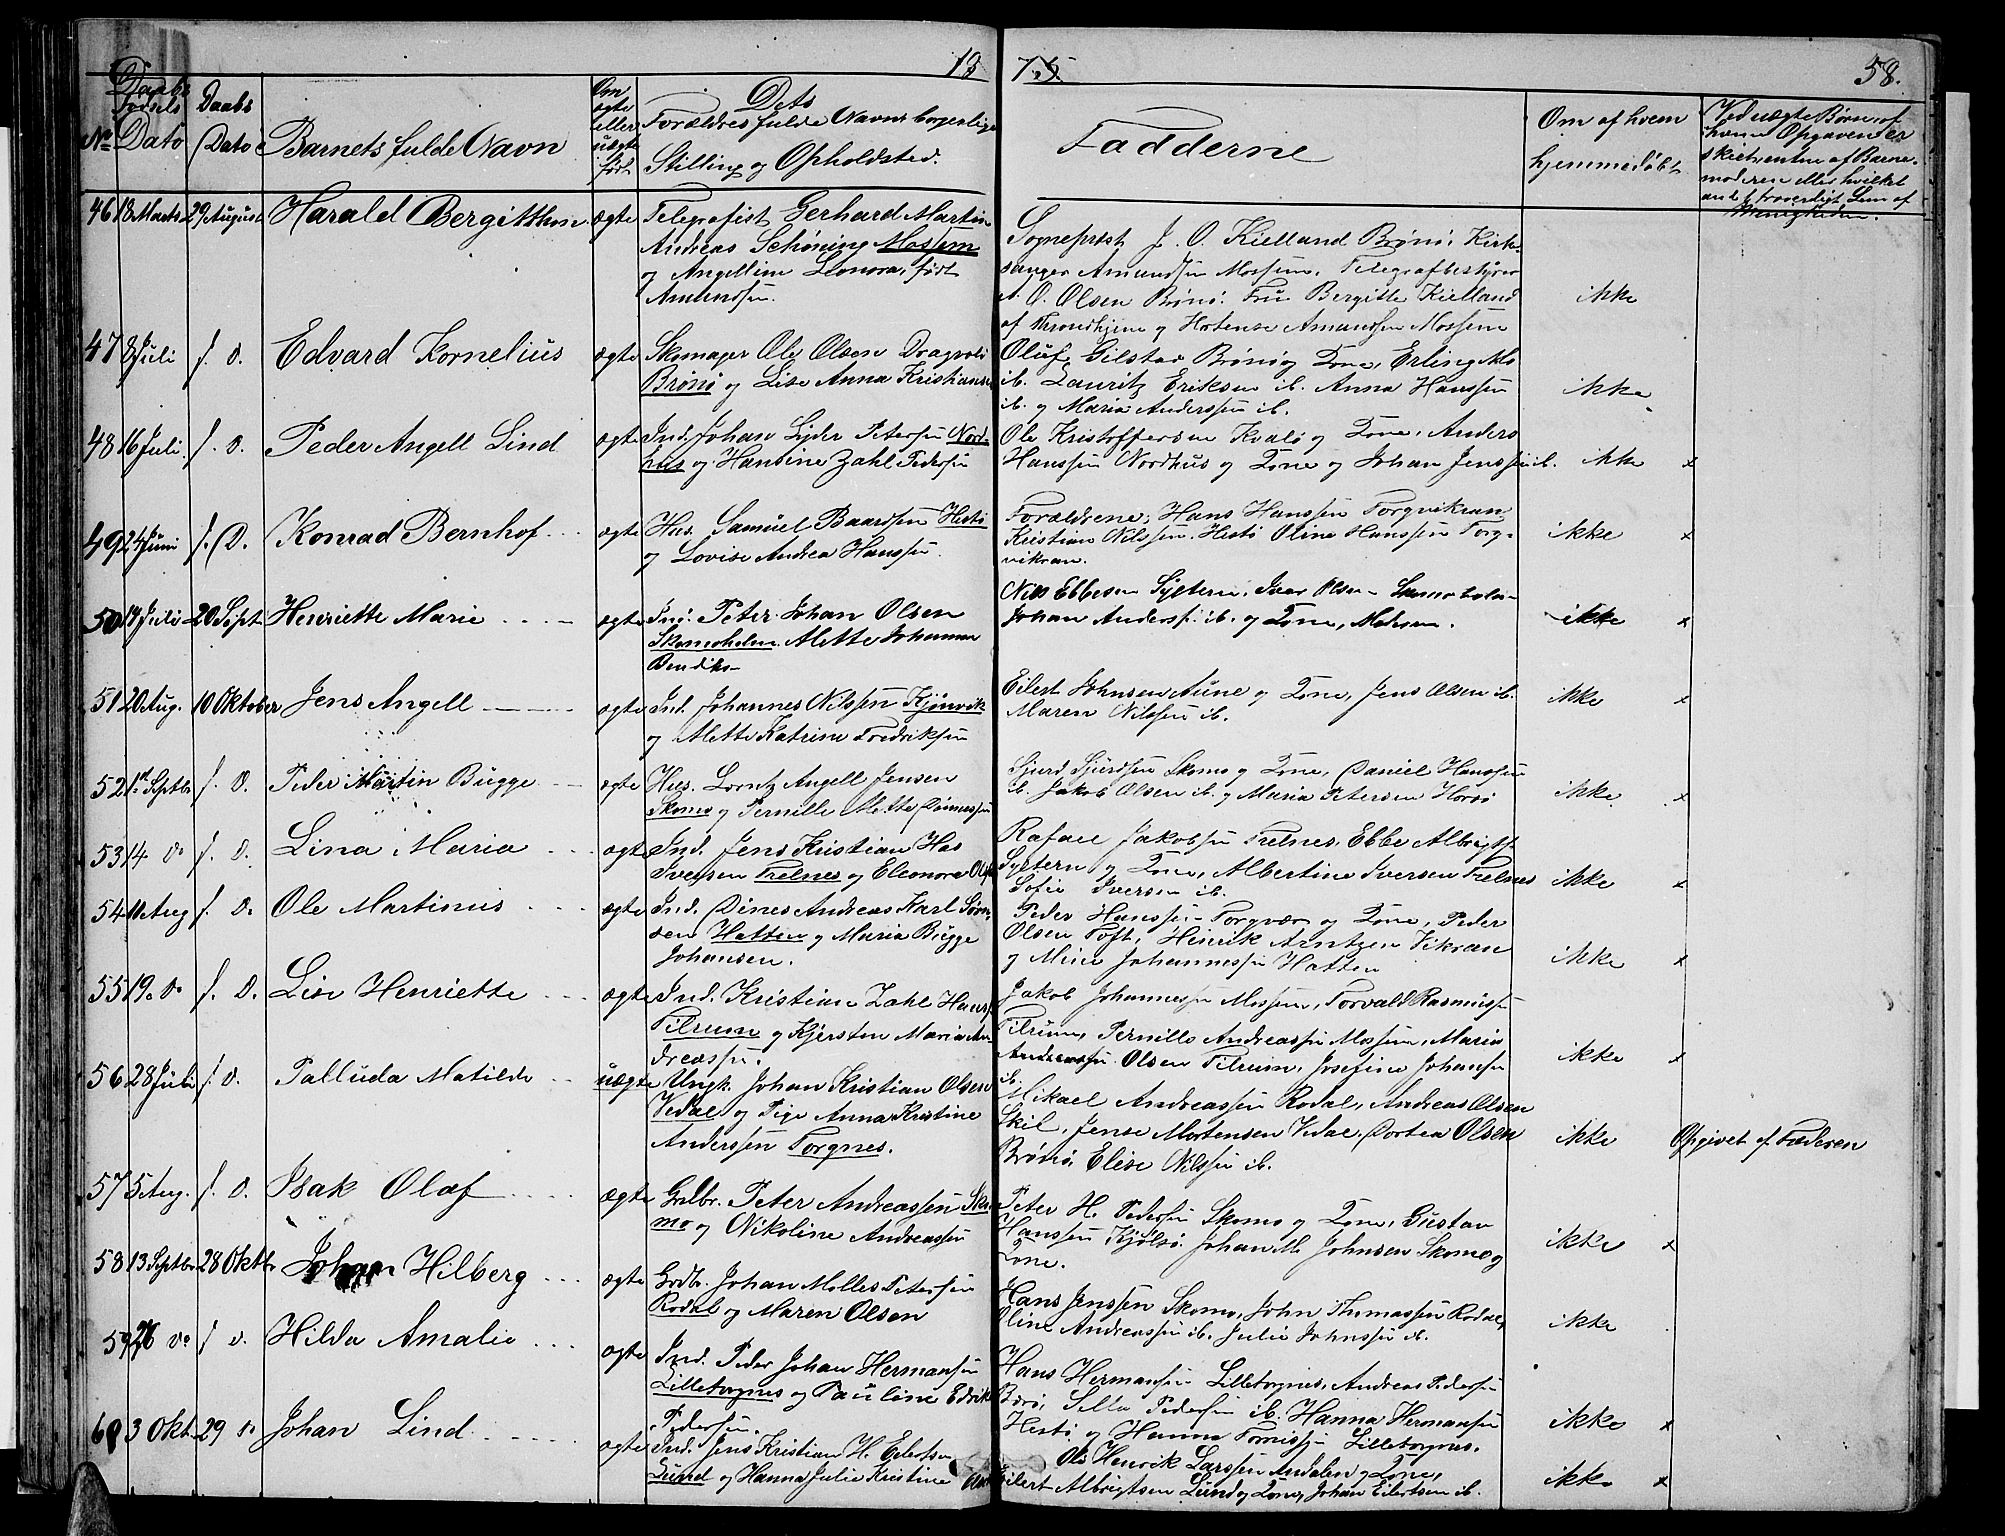 18 75. 58.
No Fødsels Dato
Daabs Dato
Barnets fulde Navn
Om ægte eller uægte født
Dets Forældres fulde Navn, borgerlige
Stilling og Opholdsted.
Fadderne
Om af hvem
hjemmedøbt
Ved uægte Børn af
hvem Opgaven er
skeet, enten af Barne-
moderen eller hvilket
andet troværdigt Lem af
Menigheden.
46 18 Marts 29 August Harald Bergitthon ægte Telegrafist Gerhard Martin
Andreas Schøning Mossem
og Angelline Leonora, født
Amundsen.
Sogneprest J. O. Kielland Brønø, Kirke-
sanger Amundsen Mossem, Telegrafbestyrer
A. O. Olsen Brønø. Fru Bergitte Kielland
af Throndhjem og Hortense Amundsen Mossem
ikke
47 8 Juli s. D. Edvard Kornelius ægte Skomager Ole Olsen
Brønø og Lise Anna Kristians
Oluf Gilstav Brønø og Kone, Erling Mo
ib. Lauritz Eriksen ib. Anna Hanssen
ib. og Maria Anderssen ib.
ikke
48 16 Juli s. D. Peder Angell Lind ægte Ind. Johan Lyder Petersen Nord-
hus og Hansine Zahl Pedersen
Ole Kristoffersen Kvalø og Kone, Anders
Hanssen Nordhus og Kone og Johan Jenssen ib.
ikke x
49 24 Juni s. D. Konrad Bernhof ægte Hus. Samuel Baardsen Hestø
og Lovise Andrea Hanssen.
Forældrene, Hans Hanssen Torgvikran
Kristian Nilssen Hestø Oline Hanssen Torg-
vikran.
ikke x
50 14 Juli 20 Sept Henriette Marie ægte Ind. Peter Johan Olsen
Skomoholm. Alette Johanna
Bendiks-
Nils Ebbesen Sylteren, Ivar Olsen Skomoholm
Johan Anderss. ib. og Kone,
ikke x
51 20 Aug. 10 Oktober Jens Angell ægte Ind. Johannes Nilssen Kjønvik
og Alette Katrine Fredriksen
Eilert Johnsen Aune og Kone, Jens Olsen ib.
Maren Nilssen ib.
ikke x
52 1st Septbr s. D. Peder Martin Bugge ægte Hus. Lorntz Angell Jensen
Skomo og Pernille Mette Dinessen
Sjurd Sjurdsen Skomo og Kone, Daniel Hanssen
ib. Jakob Olsen ib. og Maria Petersen Horsø
ikke x
53 14 do s. D. Lina Maria ægte Ind. Jens Kristian Has
Iversen Trelnes og Eleonora Ols
Rafael Jakobsen Trelnes, Ebbe Albrigts.
Syltern og Kone, Albertine Iversen Trelnes
Sofie Iversen ib.
ikke x
54 11 Aug s. D. Ole Martinus ægte Ind. Dines Andreas Karl Søren-
sen Hatten og Maria Bugge
Johansen.
Peder Hanssen Torgvær og Kone, Peder
Olsen Toft, Hinrik Arntzen Vikran
og Mina Johannessen Hatten
ikke x
55 19. do s. D. Lise Henriette ægte Ind. Kristian Zahl Hans
Tilrum og Kjersten Maria An-
dreassen.
Jakob Johannessen Mossem, Torvald Rasmuss.
Tilrum, Pernille Andreassen Mossem, Maria
Andreassen Olsen Tilrum, Josefine Johansen
ib.
ikke x
56 28 Juli s. D. Palluda Matilde uægte Ungk. Johan Kristian Olsen
Vedal og Pige Anna Kristine
Anderssen Torgnes.
Mikael Andreassen Rodal, Andreas Olsen
Skil, Jense Mortensen Vedal, Dortea Olsen
Brønø, Elise Nilssen ib.
ikke Opgivet af Faderen
57 5 Aug. s. D. Isak Olaf ægte Grdbr. Peter Andreassen Sko-
mo og Nikoline Andreassen
Peter H. Pedersen Skomo og Kone, Gustav
Hanssen Kjølsø. Johan M. Johnsen Skomo og
Kone.
ikke x
58 13 Septbr 28 Oktbr Johan Hilberg ægte Grdbr. Johan Molles Petersen
Rodal og Maren Olsen
Hans Jenssen Skomo, John Thomassen Rodal,
Oline Andreassen ib. Julie Johnssen ib.
ikke
59 26 do s. D. Hilda Amalie ægte Ind. Peder Johan Hermansen
Lilletorgnes og Pauline Edrike
Pedersen.
Hans Hermansen Lilletorgnes, Andreas Pedersen
Børø, Silla Pedersen ib. Hanna Hermansen
Hestø og Hanna Tomissen Lilletorgnes.
ikke x
60 3 Okt. 29 do Johan Lind ægte Ind. Jens Kristian H. Eilertsen
Sund og Hanna Julie Kristine
Ole Henrik Larssen Andalen og Kone,
Eilert Albrigtsen Sund og Kone, Johan Eilertsen ib.
ikke x